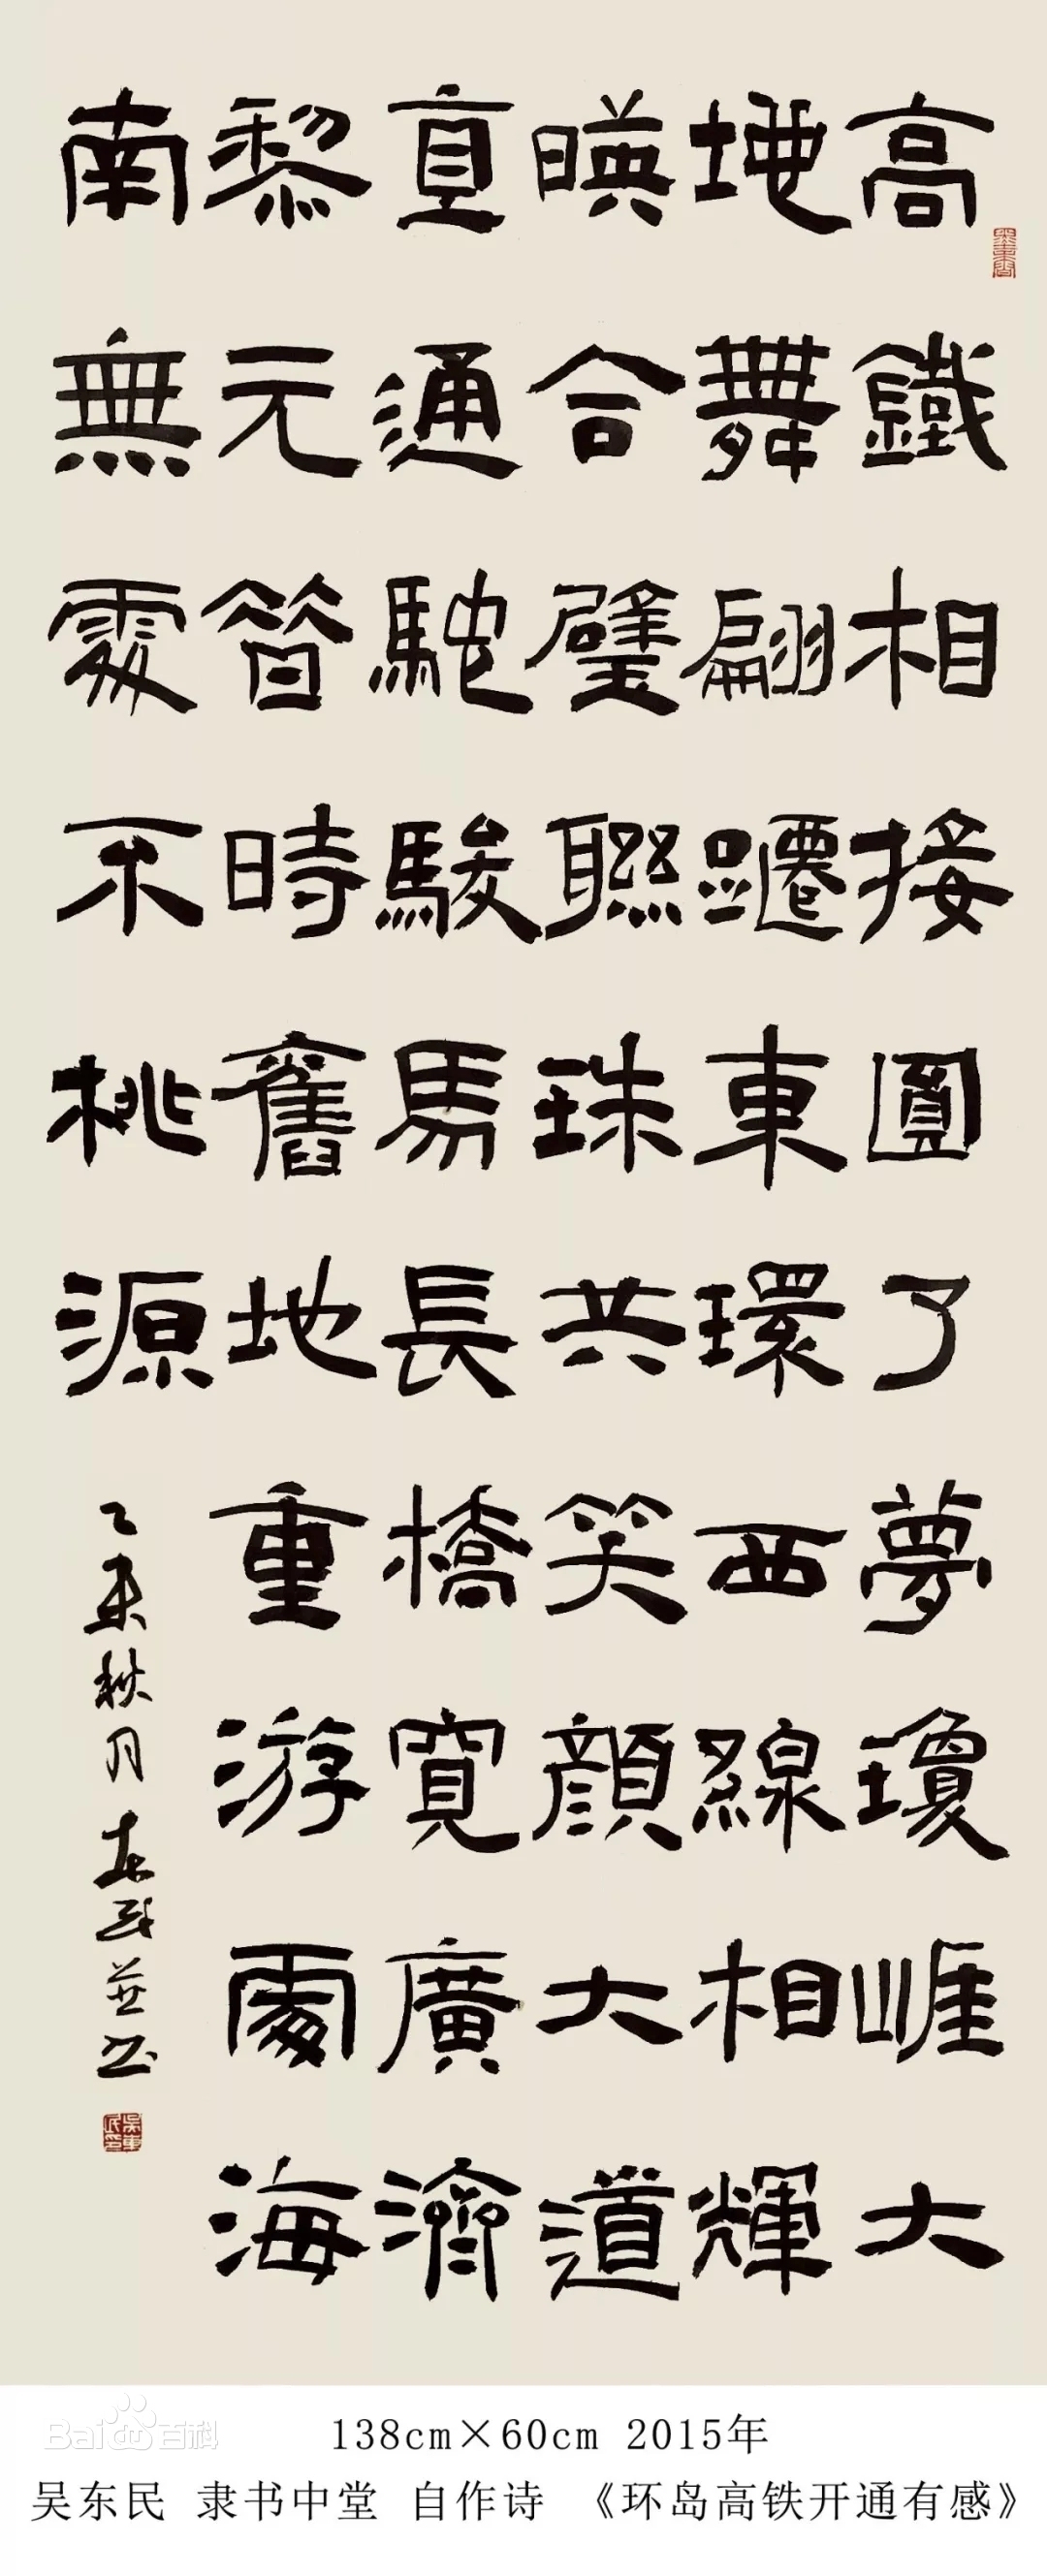 高鐵相接圓了夢瓊崕大
地舞翩躚東環西線相輝
暎合璧聯珠共笑顏大道
直通馳駿馬長橋寬廣濟
黎元昔時舊地重游處海
南無處不桃源
乙未秋月东民並书
吳東民印
Bai百科
138cm×60cm 2015年
吴东民 隶书中堂 自作诗 《环岛高铁开通有感》